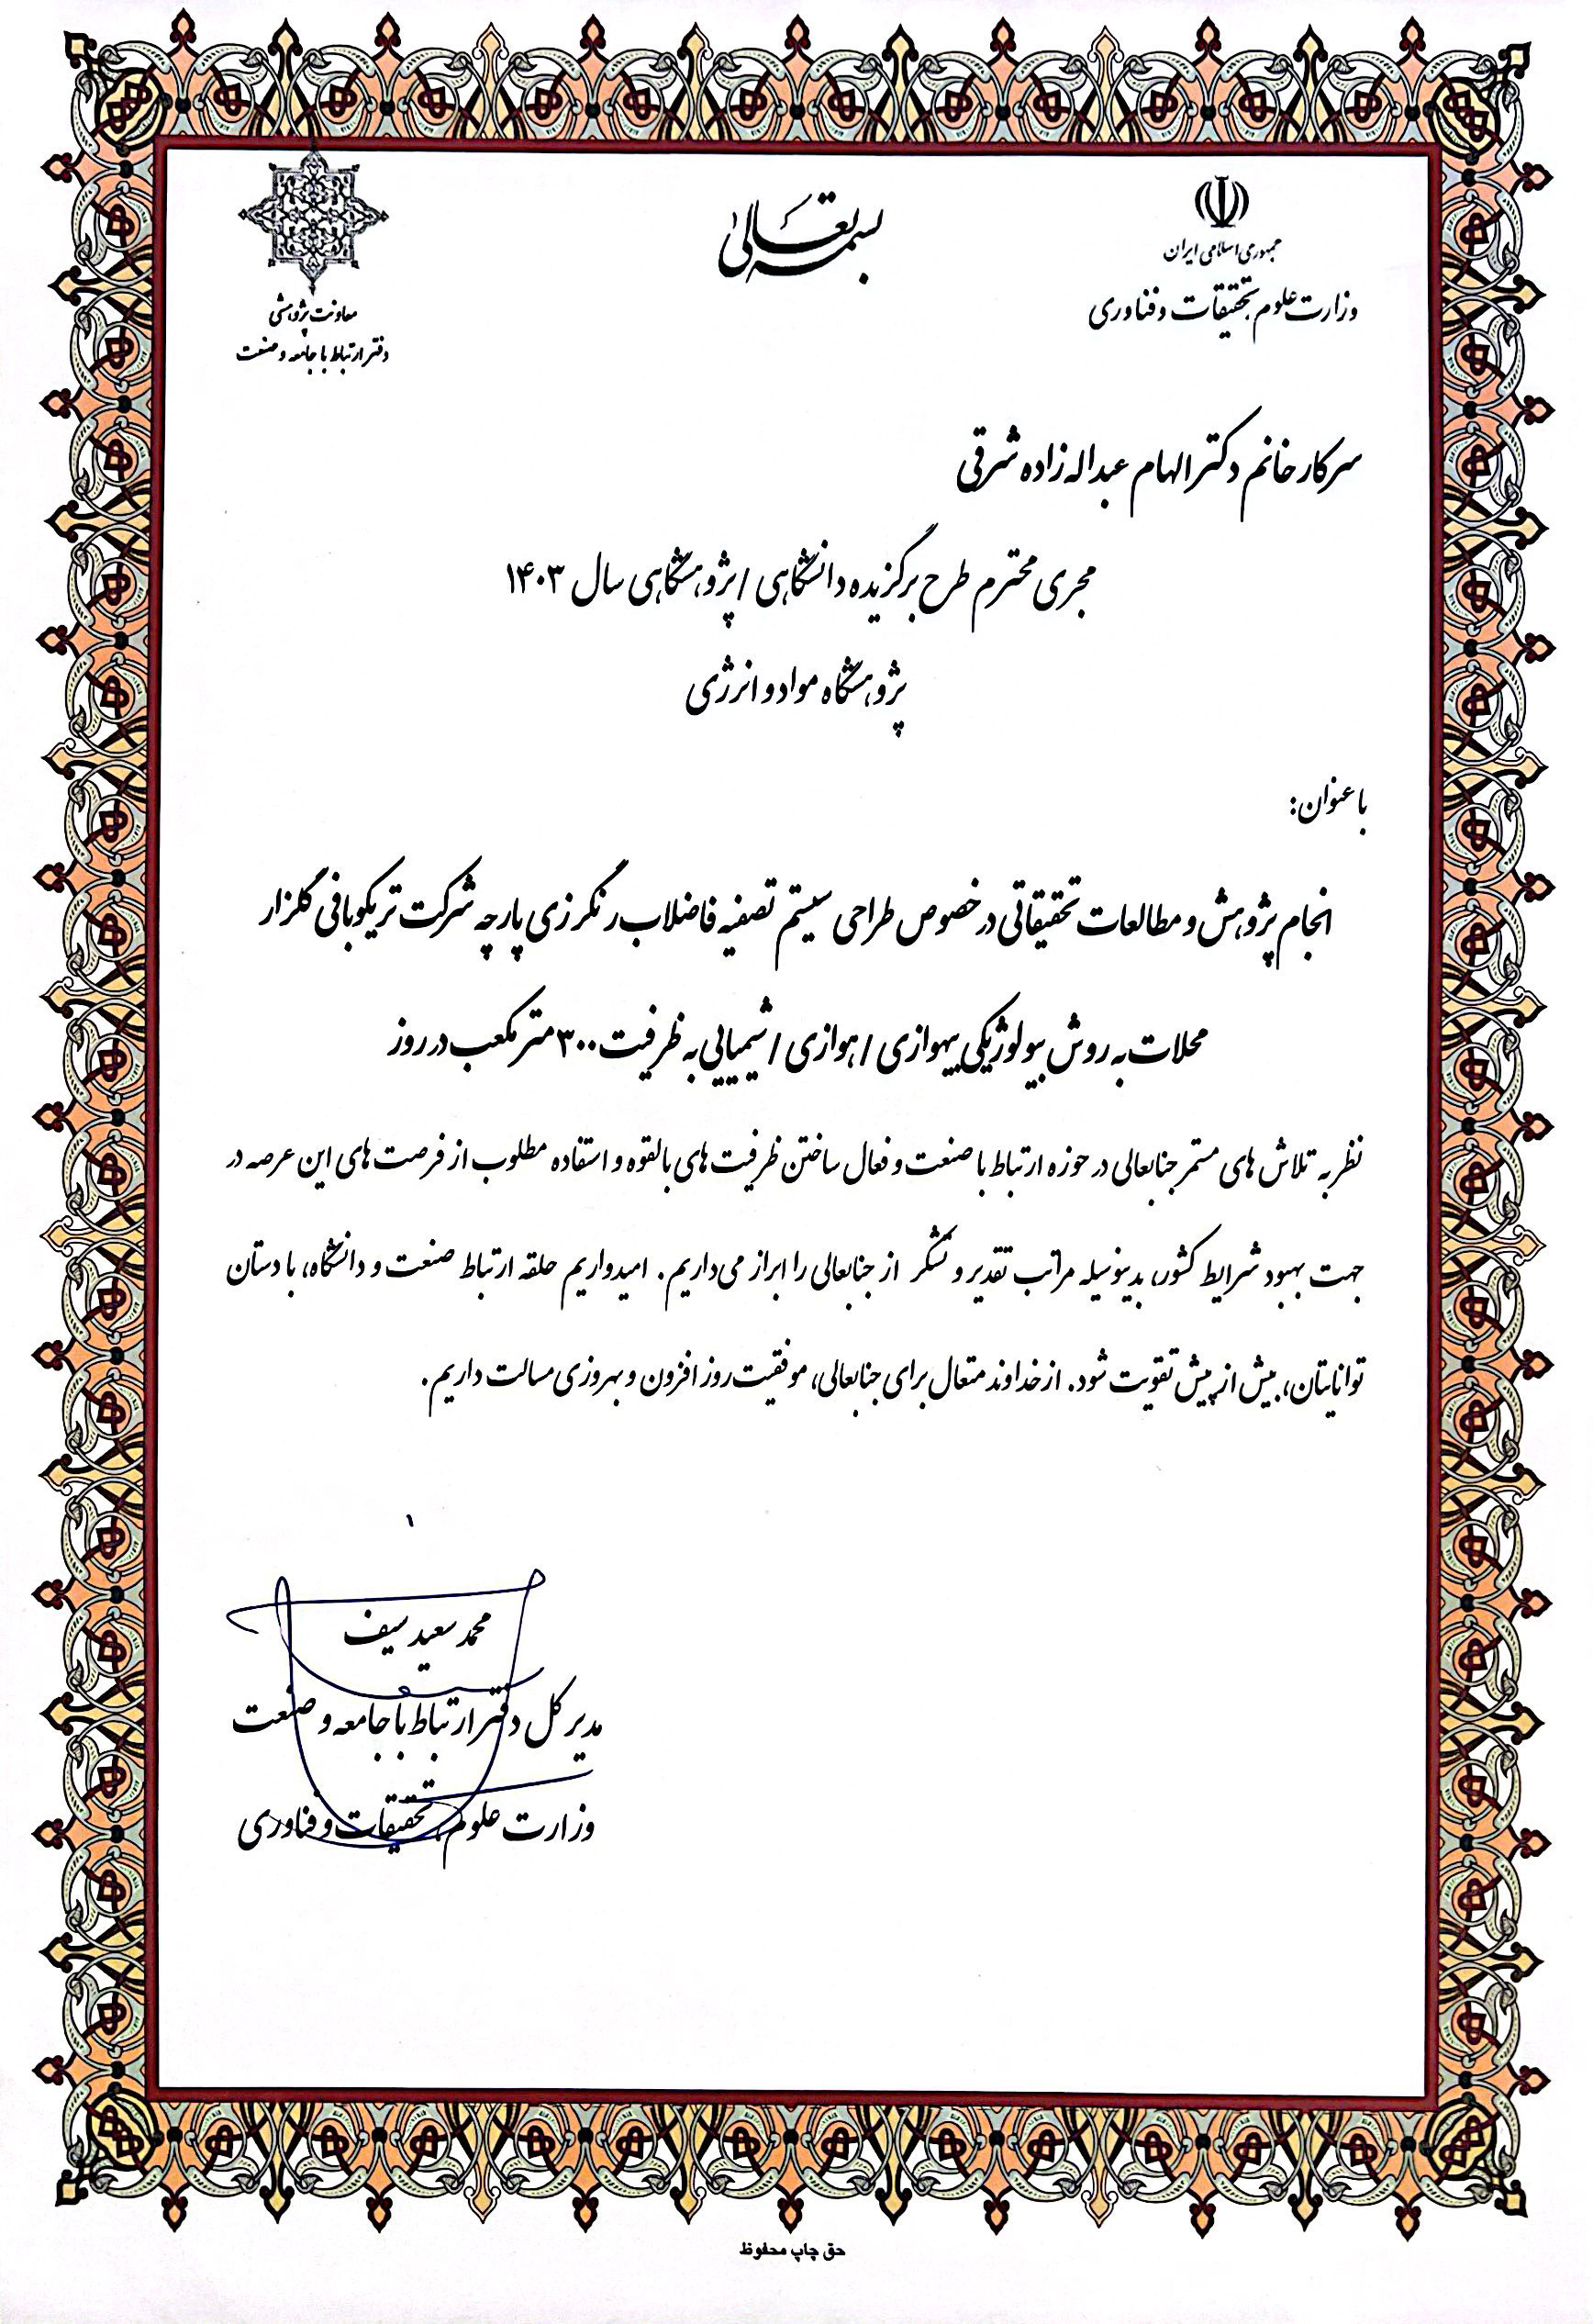 بسمه تعالی
جمهوری اسلامی ایران
وزارت علوم تحقیقات و فناوری
معاونت پژوهشی
دفتر ارتباط با جامعه و صنعت
سرکار خانم دکتر الهام عبداله زاده شرقی
مجری محترم طرح برگزیده دانشگاهی / پژوهشگاهی سال ۱۴۰۳
پژوهشگاه مواد و انرژی
با عنوان:
انجام پژوهش و مطالعات تحقیقاتی در خصوص طراحی سیستم تصفیه فاضلاب رنگرزی پارچه شرکت تریکو بافی گلزار
محلات به روش بیولوژیکی بیهوازی / هوازی / شیمیایی به ظرفیت ۳۰۰ متر مکعب در روز
نظر به تلاش های مستمر جنابعالی در حوزه ارتباط با صنعت و فعال ساختن ظرفیت های بالقوه و استفاده مطلوب از فرصت های این عرصه در
جهت بهبود شرایط کشور، بدینوسیله مراتب تقدیر و تشکر از جنابعالی را ابراز می‌داریم. امیدواریم حلقه ارتباط صنعت و دانشگاه، با دستان
توانایتان، بیش از پیش تقویت شود. از خداوند متعال برای جنابعالی، موفقیت روز افزون و بهروزی مسالت داریم.
محمد سعید سیف
مدیر کل دفتر ارتباط با جامعه و صنعت
وزارت علوم، تحقیقات و فناوری
حق چاپ محفوظ